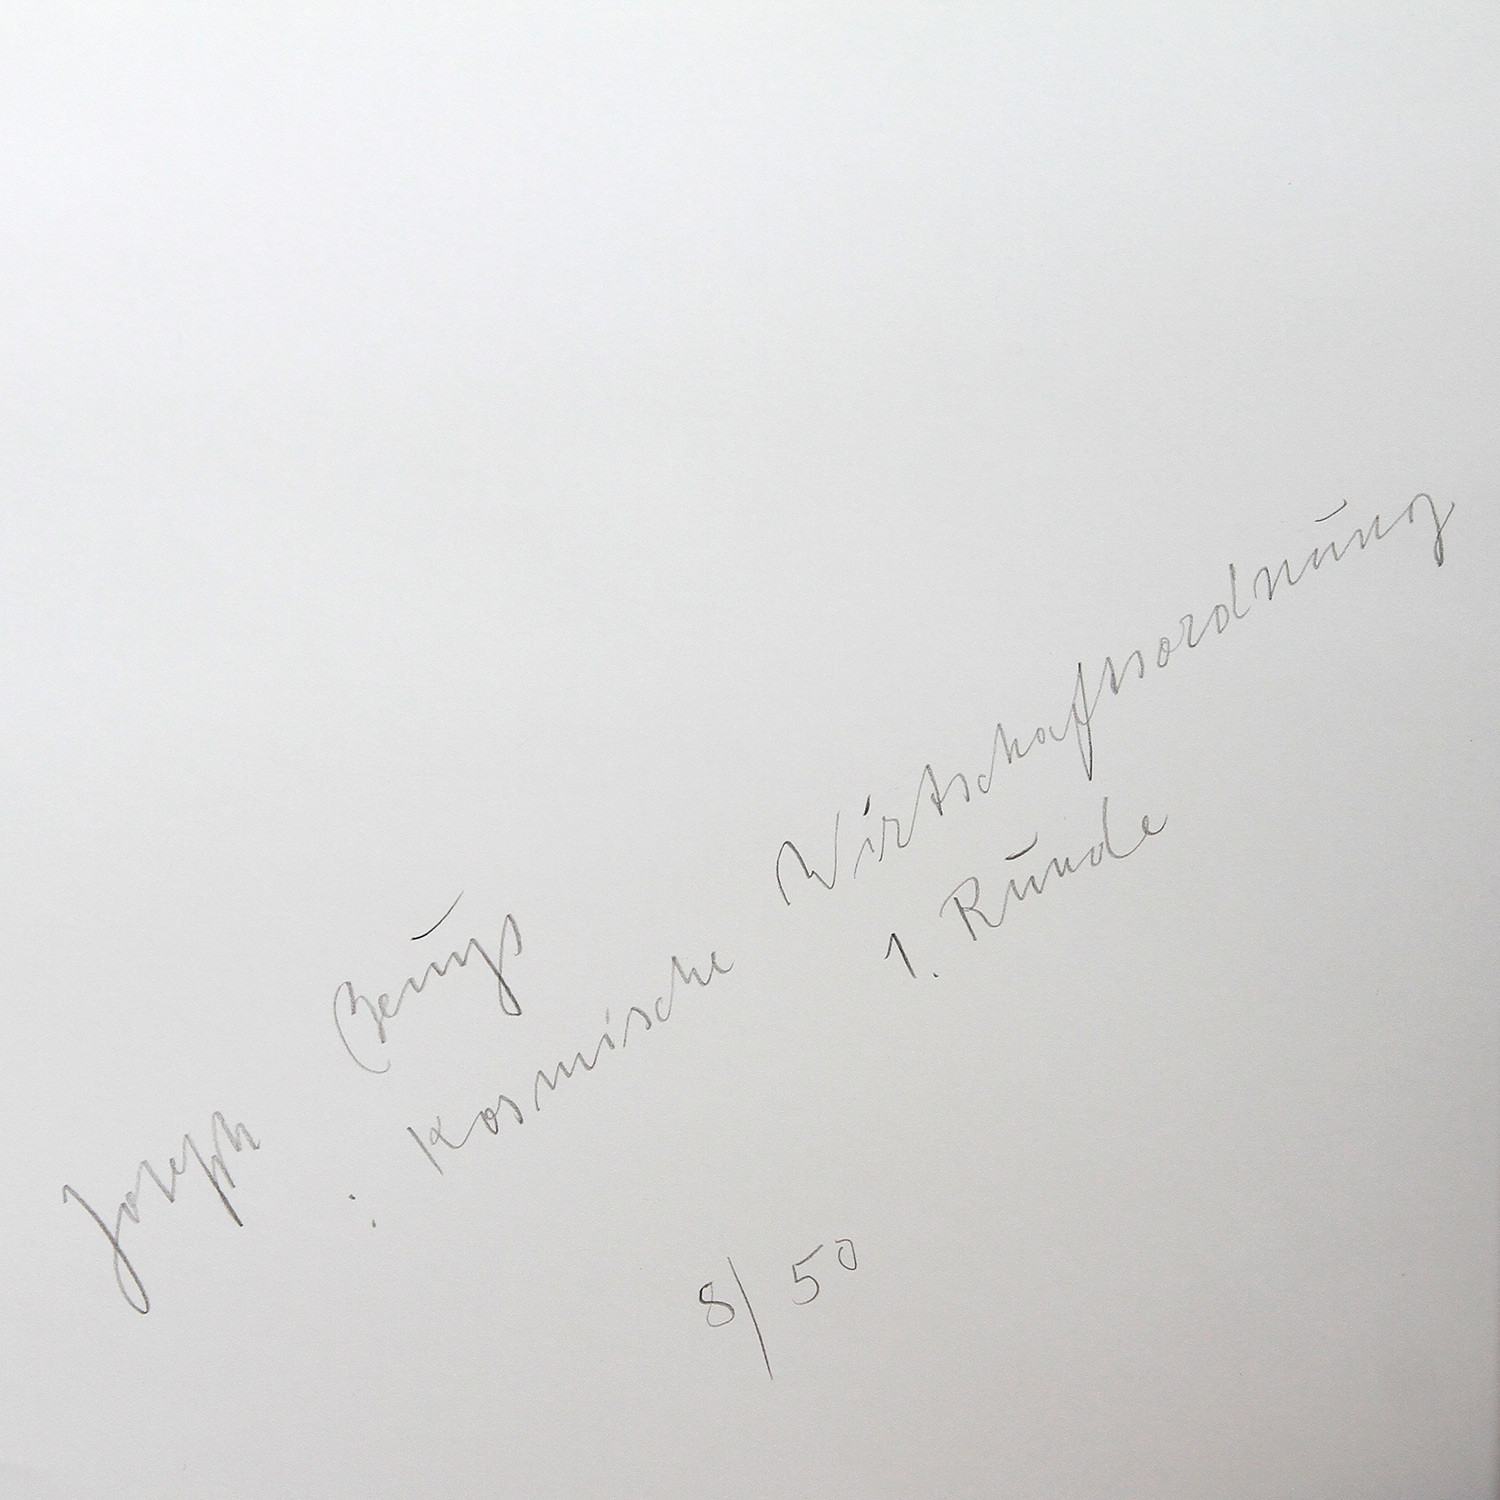 Joseph Beuys
: Kosmische Wirtschaftsordnung
1. Runde
8/50